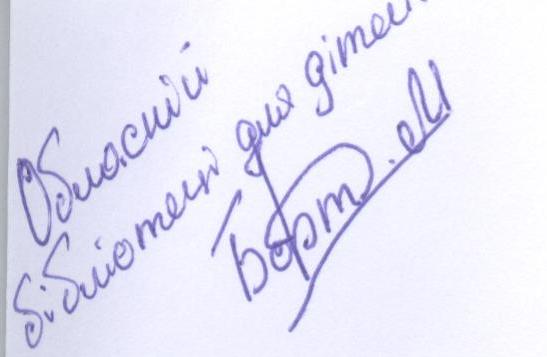 Обласній
бібліотеці для дітей